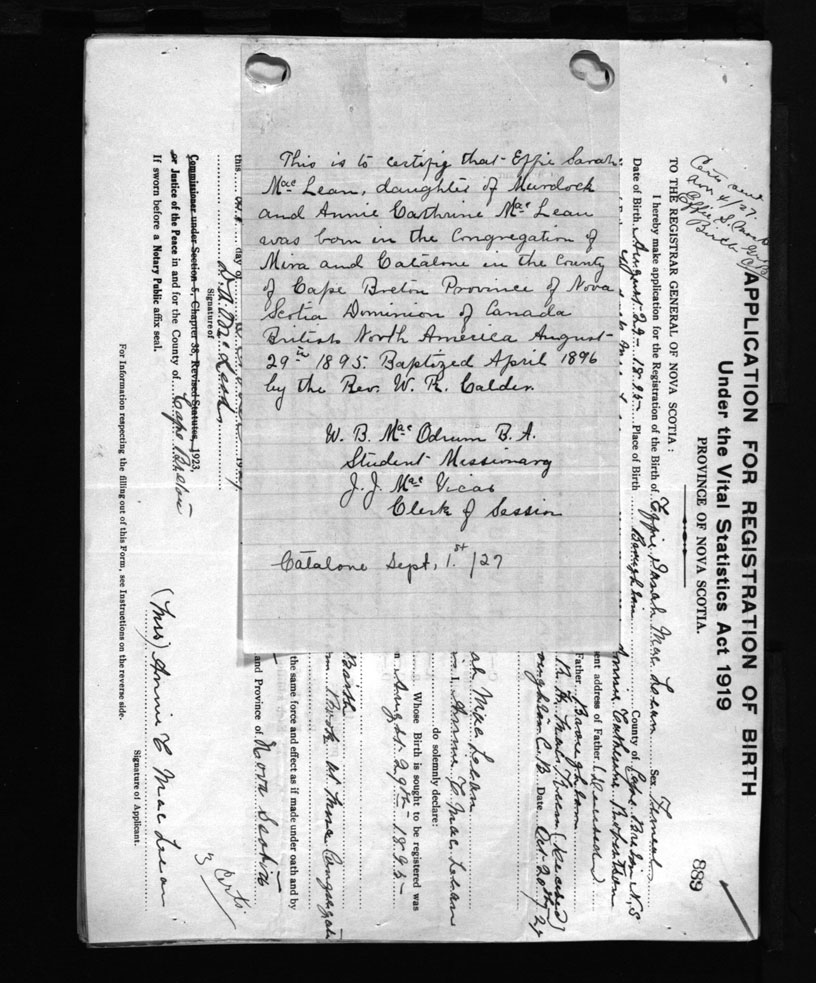 This is to certify that Effie Sarah
Mac Lean, daughter of Murdock
and Annie Cathrine Mac Lean
was born in the Congregation of
Mira and Catalone in the County
of Cape Breton Province of Nova
Scotia Dominion of Canada
British North America August
29th 1895. Baptized April 1896
by the Rev. W. R. Calder.
W. B. Mac Odrum B. A.
Student Missionary
J. J. Mac Vicar
Clerk of Session
Catalone Sept, 1.st /27
APPLICATION FOR REGISTRATION OF BIRTH
Under the Vital Statistics Act 1919
PROVINCE OF NOVA SCOTIA.
889
TO THE REGISTRAR GENERAL OF NOVA SCOTIA:
I hereby make application for the Registration of the Birth of Effie Sarah Mac Lean Sex Female
Date of Birth August 29 - 1895 Place of Birth Broughton County of Cape Breton N.S
Annie Catherine Robertson
ent address of Father (Deceased)
Father Broughton
(deceased)
C.B Date Oct 20th 27
ah Mac Lean
I, Annie C Mac Lean
do solemnly declare:
Whose Birth is sought to be registered was
n August 29th - 1895 -
Birth
the same force and effect as if made under oath and by
and Province of Nova Scotia
this day of
Signature of
Commissioner under Section 5, Chapter 38, Revised Statutes, 1923,
or Justice of the Peace in and for the County of Cape Breton
If sworn before a Notary Public affix seal.
(Mrs) Annie C Mac Lean
Signature of Applicant.
For Information respecting the filling out of this Form, see Instructions on the reverse side.
3 Certs